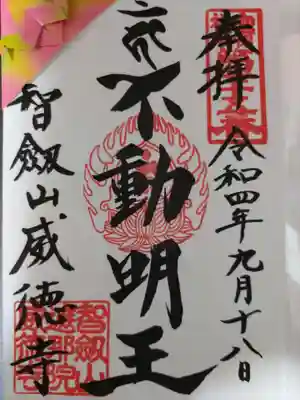 奉拝
令和四年九月十八日
不動明王
智劔山威徳寺